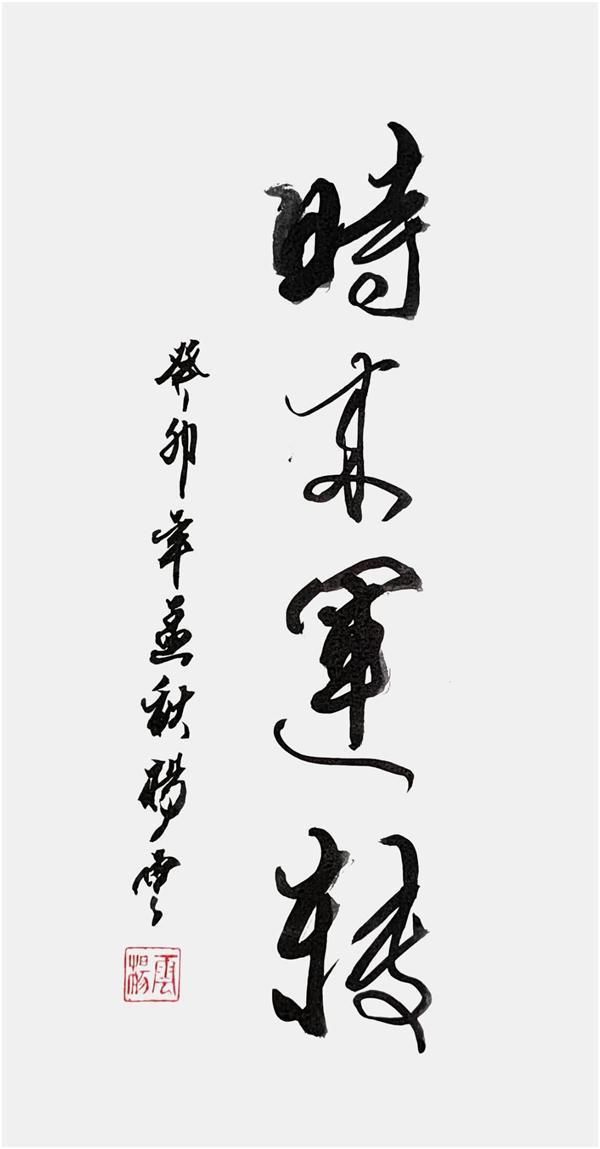 時来運转
癸卯年孟秋楊雲
楊雲